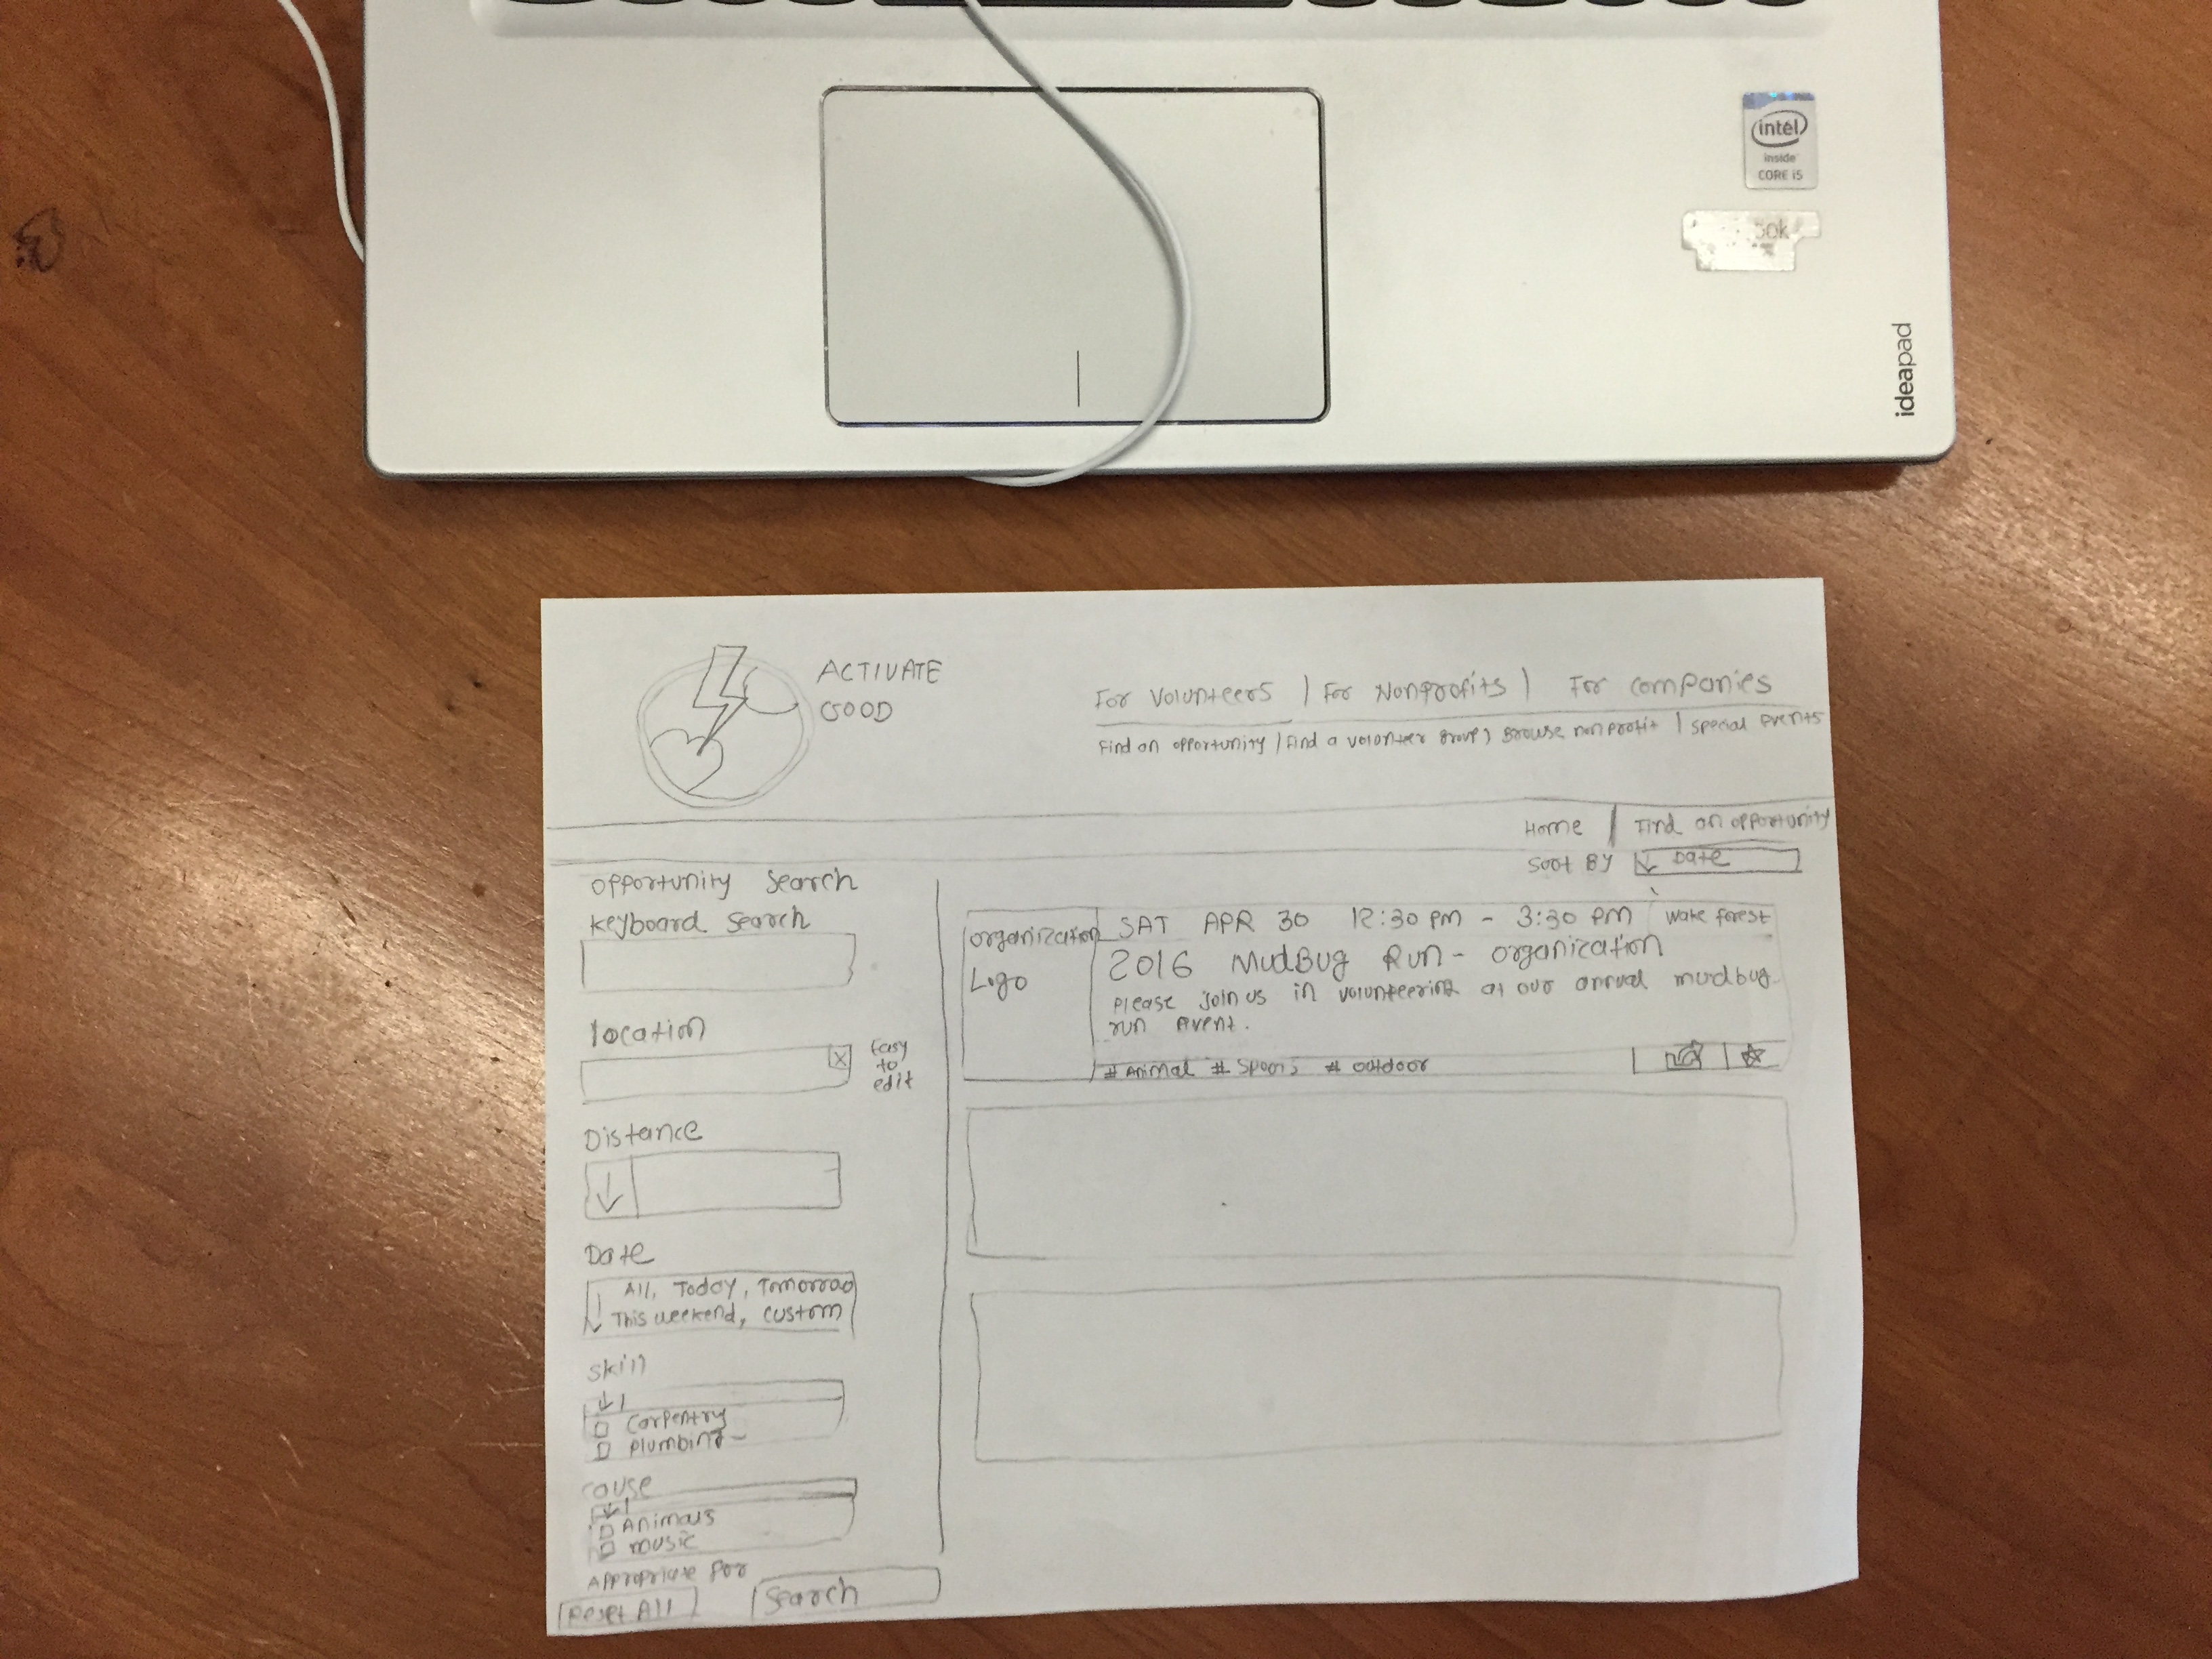 intel
inside
CORE i5
ook
ideapad
ACTIVATE
GOOD
For Volunteers | For Nonprofits | For Companies
Find an opportunity | Find a volunteer group | Browse nonprofit | Special Events
Home | Find an opportunity
Sort By ↓ Date
Opportunity Search
Keyboard Search
Location
X
Easy
to
edit
Distance
↓
Date
All, Today, Tomorrow
This weekend, custom
Skill
Carpentry
Plumbing
Cause
Animals
music
Appropriate for
Reset All
Search
organization
Logo
SAT APR 30 12:30 PM - 3:30 PM Wake Forest
2016 MudBug Run - organization
Please join us in volunteering at our annual mudbug
run event.
# Animal # Sports # outdoor